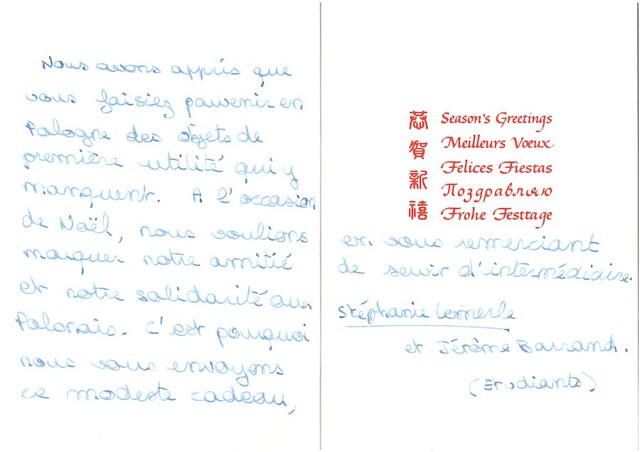 Nous avons appris que
vous faisiez parvenir en
Pologne des objets de
première utilité qui y
manquent. A l'occasion
de Noël, nous voulions
marquer notre amitié
et notre solidarité aux
Polonais. C'est pourquoi
nous vous envoyons
ce modeste cadeau,
恭賀新禧
Season's Greetings
Meilleurs Voeux
Felices Fiestas
Поздравляю
Frohe Festtage
en vous remerciant
de servir d'intermédiaire.
Stéphanie Lemerle
et Jérôme Barrand.
(Etudiants)